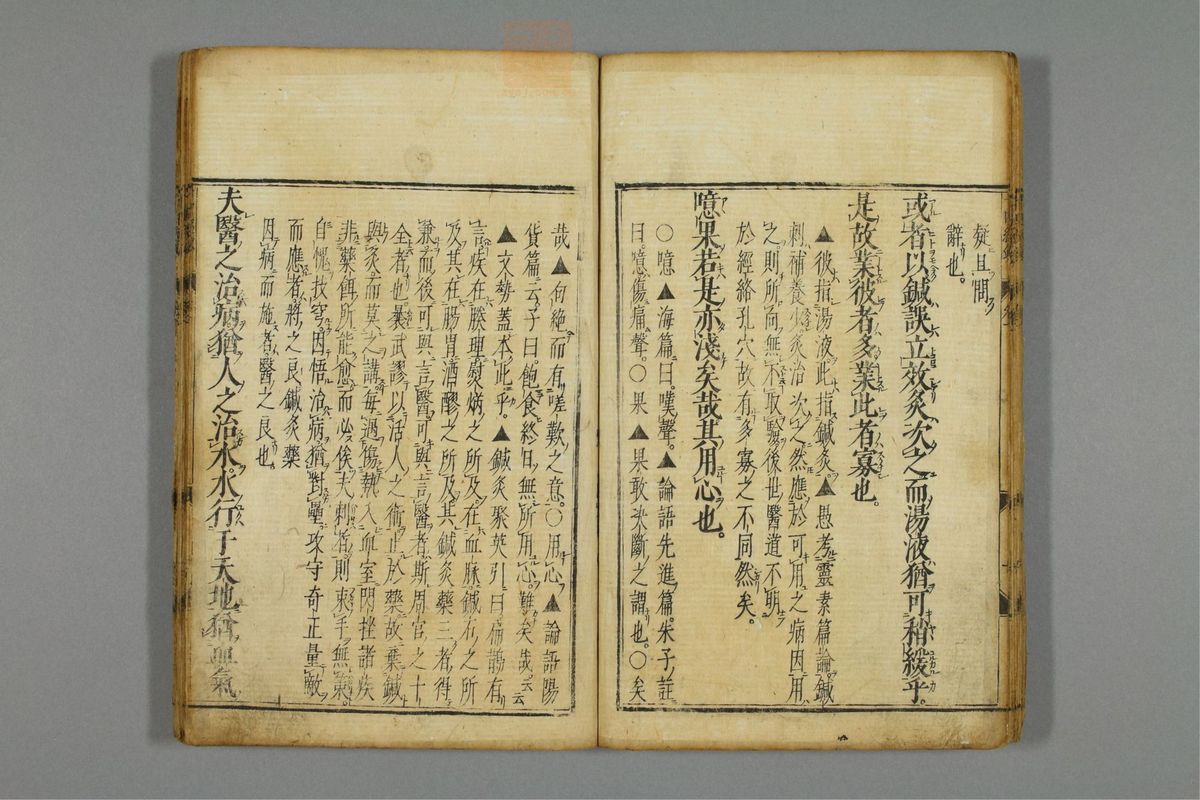 疑且問
辭也。
或者以鍼誤立效灸次之而湯液猶可稍緩乎。
是故業彼者多業此者寡也。
▲彼指湯液此指鍼灸。▲愚考靈素篇論鍼
刺補養少灸治次之然應於可用之病因用
之則所向無不取驗後世醫道不明
於經絡孔穴故有多寡之不同然矣。
噫果若是亦淺矣哉其用心也。
○噫▲海篇曰。嘆聲。▲論語先進篇。朱子註
曰。噫傷痛聲。○果▲果敢决斷之謂也。○矣
哉▲句絶而有嗟歎之意。○用心▲論語陽
貨篇云子曰。飽食終日無所用心。難矣哉。云云
▲文勢蓋本此乎。▲鍼灸聚英引曰扁鵲有
言疾在腠理熨焫之所及在血脉鍼石之所
及其在腸胃酒醪之所及其鍼灸藥三者得
兼而後可與言醫可與言醫者斯周官之十
全者也曩武謬以活人之術止於藥故棄鍼
與灸而莫之講每遇傷熱入血室閃挫諸疾
非藥餌所能愈而必俟夫刺者則束手無策。
自愧技窮因悟治病猶對壘。攻守奇正量敵
而應者將之良鍼灸藥
因病而施者醫之良也
夫醫之治病猶人之治水。水行于天地猶血氣